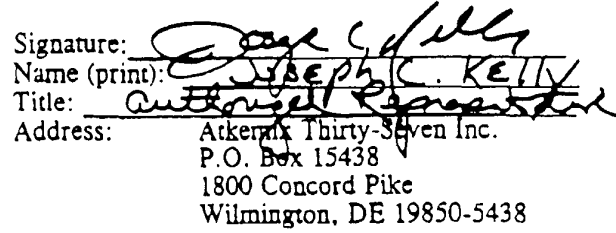 Signature: Joseph C. Kelly
Name (print): JOSEPH C. KELLY
Title: Authorized Representative
Address: Atkemix Thirty-Seven Inc.
P.O. Box 15438
1800 Concord Pike
Wilmington, DE 19850-5438